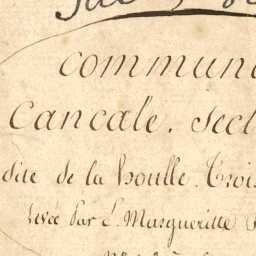 commun
Cancale. Sect
dite de la houlle. Trois
Levée Par S. Margueritte